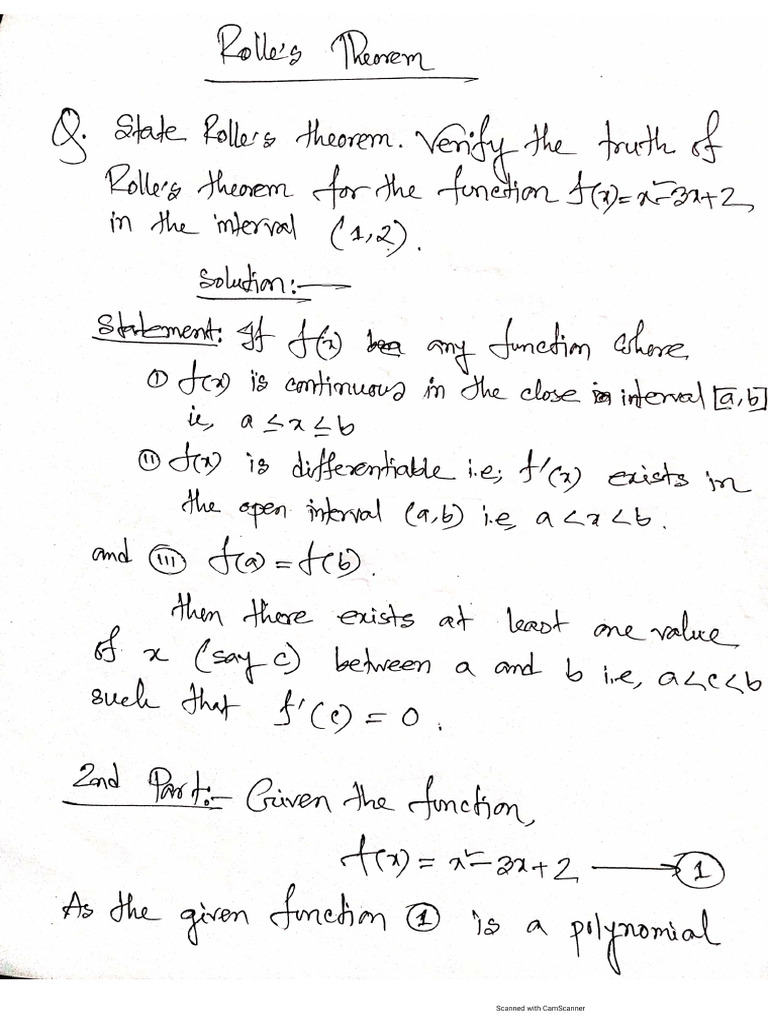 Rolle's Theorem
Q. State Rolle's theorem. Verify the truth of
Rolle's theorem for the function f(x)=x²-3x+2,
in the interval (1,2).
Solution:—
Statement: If f(x) be any function where
(i) f(x) is continuous in the close interval [a,b]
ie, a ≤ x ≤ b
(ii) f(x) is differentiable i.e; f'(x) exists in
the open interval (a,b) i.e, a < x < b.
and (iii) f(a) = f(b).
then there exists at least one value
of x (say c) between a and b i.e, a<c<b
such that f'(c) = 0.
2nd Part:- Given the function,
f(x) = x²-3x+2 ——→ (1)
As the given function (1) is a polynomial
Scanned with CamScanner